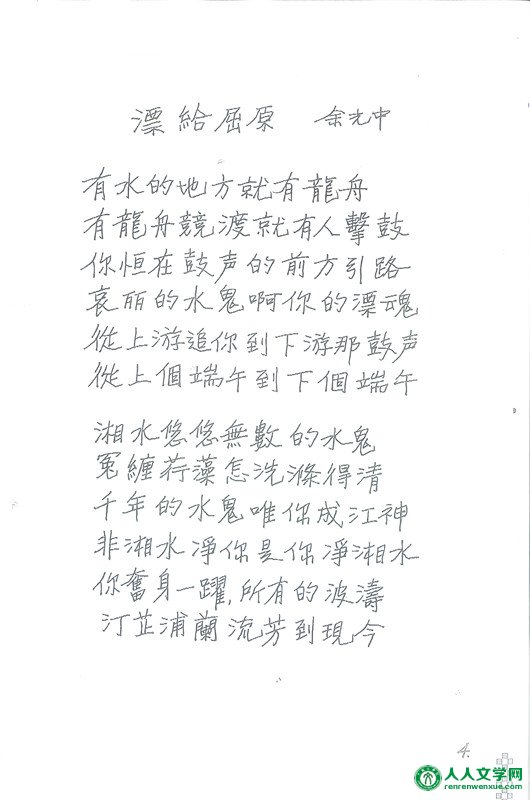 漂給屈原 余光中
有水的地方就有龍舟
有龍舟競渡就有人擊鼓
你恒在鼓声的前方引路
哀丽的水鬼啊你的漂魂
從上游追你到下游那鼓声
從上個端午到下個端午
湘水悠悠無數的水鬼
冤纏荇藻怎洗滌得清
千年的水鬼唯你成江神
非湘水凈你是你凈湘水
你奮身一躍,所有的波濤
汀芷浦蘭流芳到現今
4.
人人文学网
renrenwenxue.com